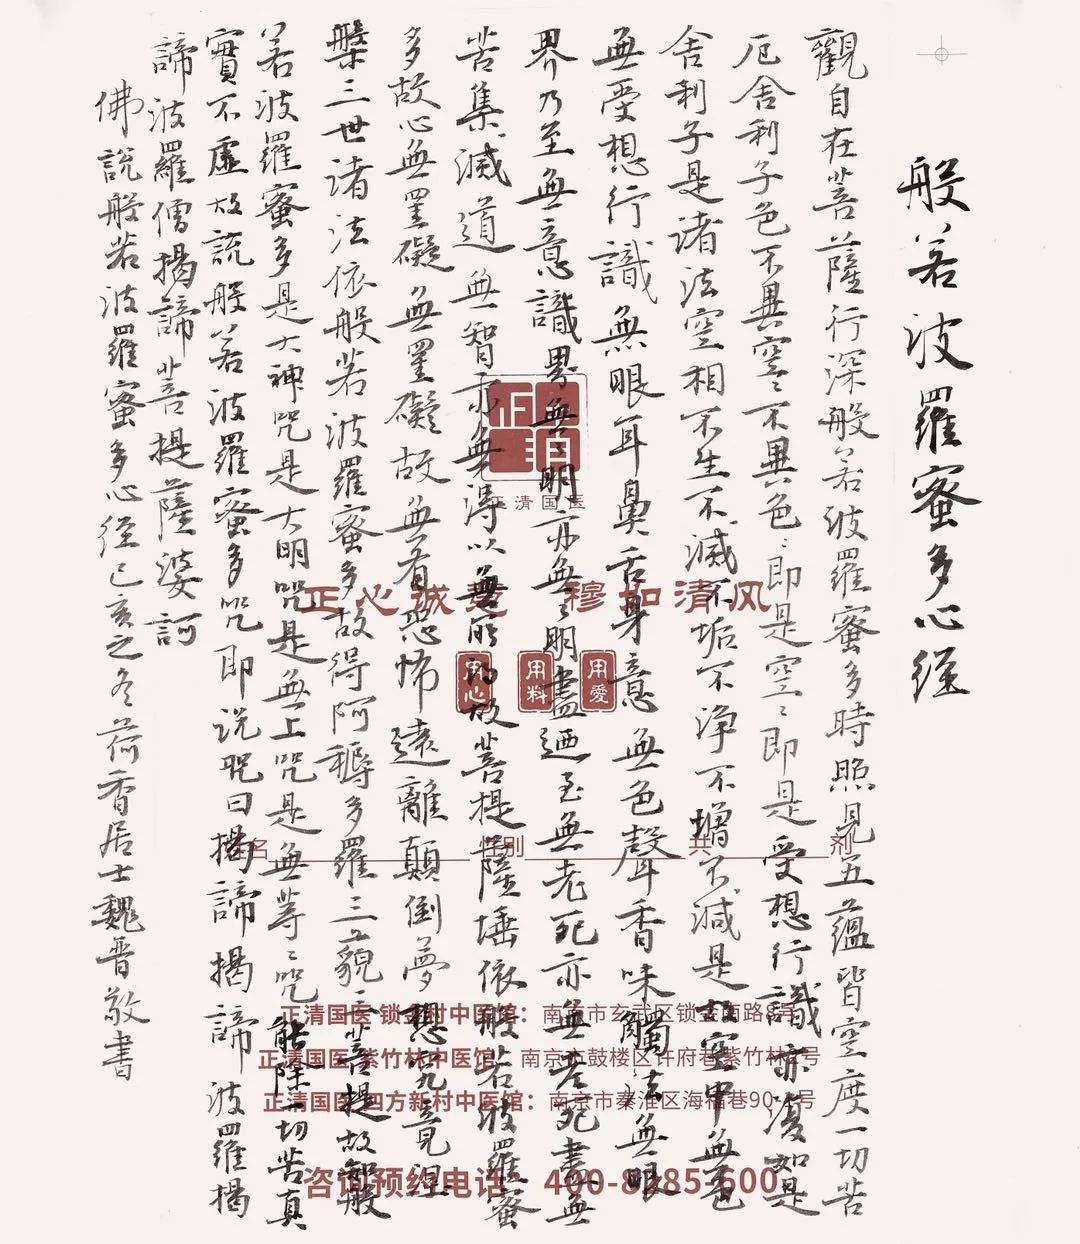 般若波羅蜜多心経
觀自在菩薩行深般若波羅蜜多時照見五蘊皆空度一切苦
厄舍利子色不異空〻不異色〻即是空〻即是受想行識亦復如是
舍利子是诸法空相不生不滅不垢不净不增不減是故空中無色
無受想行識無眼耳鼻舌身意無色聲香味觸法無眼
界乃至無意識界無〻明亦無〻明盡迺至無老死亦無老死盡無
苦集滅道無智亦無得以無所得故菩提薩埵依般若波羅蜜
多故心無罣礙無罣礙故無有恐怖遠離顛倒夢想究竟涅
槃三世诸法依般若波羅蜜多故得阿耨多羅三藐三菩提故知般
若波羅蜜多是大神咒是大明咒是無上咒是無等〻咒能除一切苦真
實不虛故說般若波羅蜜多咒即说咒曰揭諦揭諦波羅揭
諦波羅僧揭諦菩提薩婆訶
佛說般若波羅蜜多心経己亥之冬荷香居士魏晋敬書
正清国医
正心诚意 穆如清风
用心 用料 用愛
名 性别 共 剂
正清国医 锁金村中医馆：南京市玄武区锁金南路8号
正清国医 紫竹林中医馆：南京市鼓楼区许府巷紫竹林号
正清国医 四方新村中医馆：南京市秦淮区海福巷90-号
咨询预约电话 400-8885-600